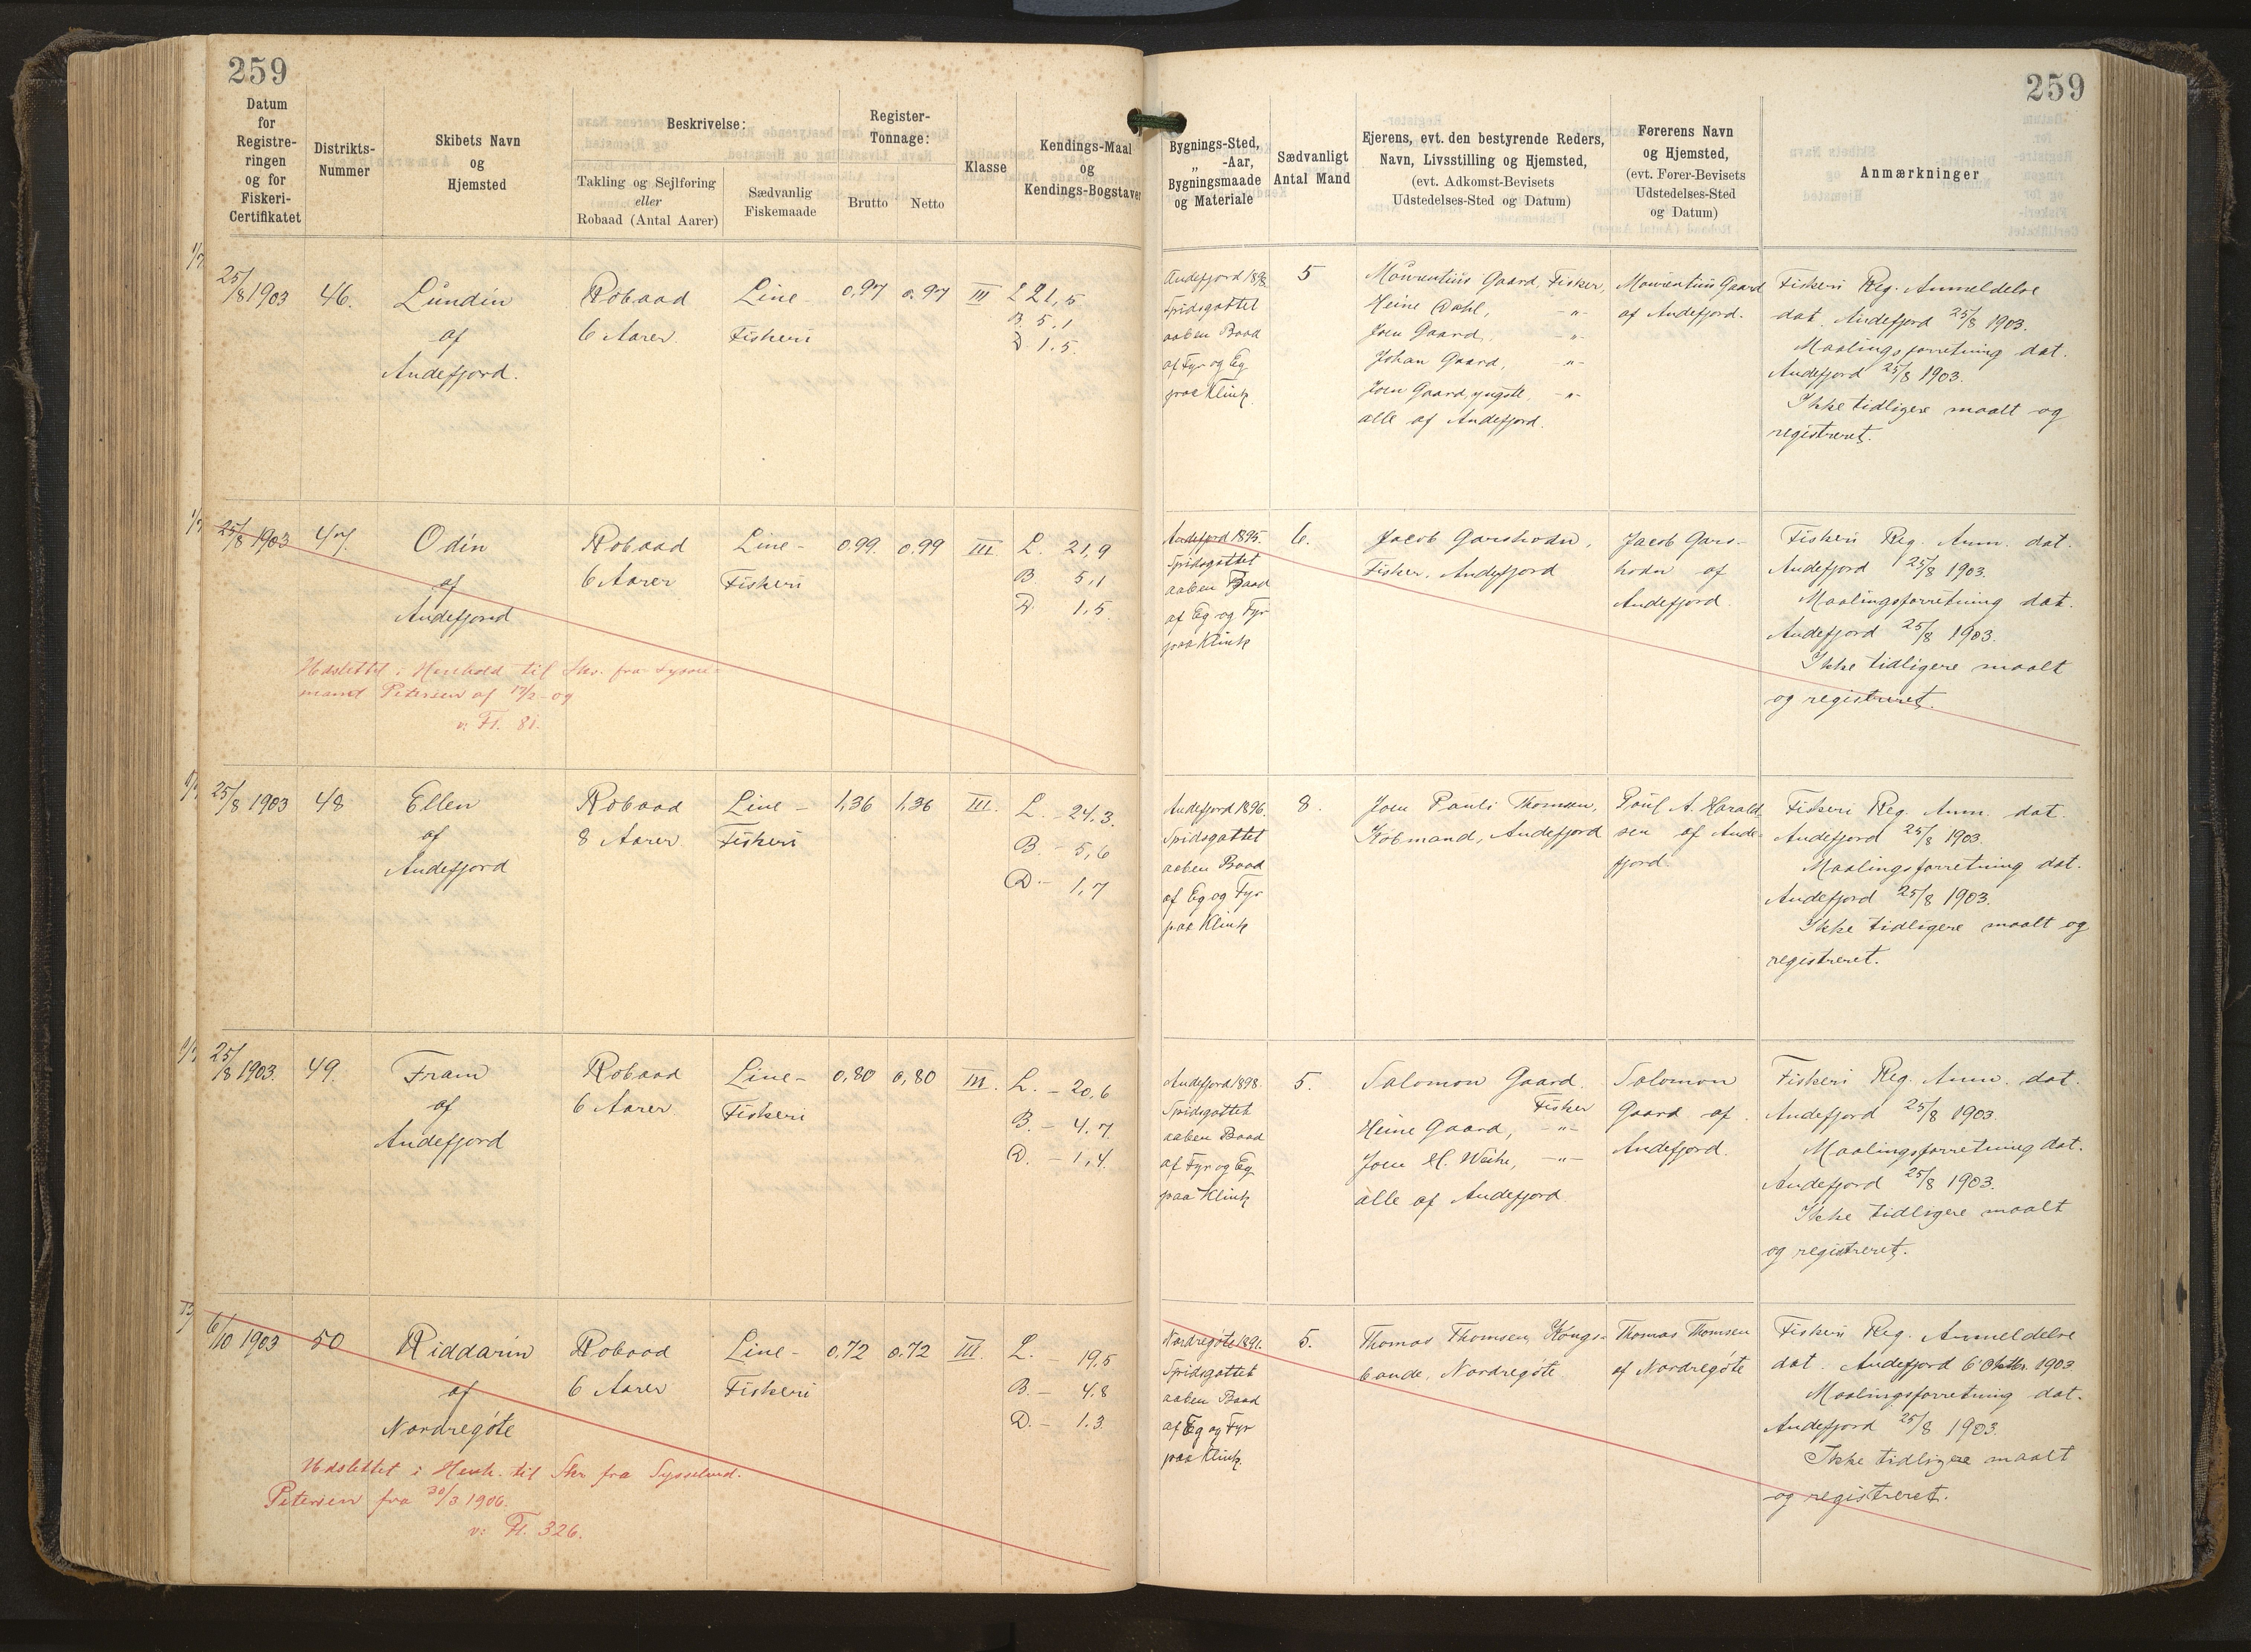 259
259
Datum
for
Registre-
ringen
og for
Fiskeri-
Certifikatet
Distrikts-
Nummer
Skibets Navn
og
Hjemsted
Beskrivelse:
Takling og Sejlføring
eller
Robaad (Antal Aarer)
Sædvanlig
Fiskemaade
Register-
Tonnage:
Brutto
Netto
Klasse
Kendings-Maal
og
Kendings-Bogstaver
Bygnings-Sted,
„ -Aar,
Bygningsmaade
og Materiale
Sædvanligt
Antal Mand
Ejerens, evt. den bestyrende Reders,
Navn, Livsstilling og Hjemsted,
(evt. Adkomst-Bevisets
Udstedelses-Sted og Datum)
Førerens Navn
og Hjemsted,
(evt. Fører-Bevisets
Udstedelses-Sted
og Datum)
Anmærkninger
25/8 1903
46.
Lundin
af
Andefjord.
Robaad
6 Aarer.
Line-
Fiskeri
0,97
0,97
III
L 21,5
B. 5,1
D. 1.5.
Andefjord 1898
Spidsgattet
aaben Baad
af Fyr og Eg
paa Klink
5
Mourentius Gaard, Fisker,
Heine Dahl, -"-
Joen Gaard, -"-
Johan Gaard, -"-
Joen Gaard, yngste, -"-
alle af Andefjord.
Mourentius Gaard
af Andefjord.
Fiskeri Reg. Anmeldelse
dat. Andefjord 25/8 1903.
Maalingsforretning dat.
Andefjord 25/8 1903.
Ikke tidligere maalt og
registreret.
25/8 1903
47.
Odin
af
Andefjord
Robaad
6 Aarer
Line-
Fiskeri
0,99.
0,99
III.
L. 21,9
B. 5,1
D. 1,5.
Andefjord 1895.
Spidsgattet
aaben Baad
af Eg og Fyr
paa Klink
6.
Jacob Garshodn,
Fisker, Andefjord
Jacob Gars-
hodn af
Andefjord.
Fiskeri Reg. Anm. dat.
Andefjord 25/8 1903.
Maalingsforretning dat.
Andefjord 25/8 1903.
Ikke tidligere maalt
og registreret.
Udslettet i Henhold til Skr. fra Syssel-
mand Petersen af og
v: Fl. 81.
25/8 1903
48
Ellen
af
Andefjord
Robaad
8 Aarer
Line-
Fiskeri
1,36
1,36
III.
L. - 24,3.
B. - 5,6
D. - 1,7
Andefjord 1896.
Spidsgattet
aaben Baad
af Eg og Fyr
paa Klink
8.
Joen Pauli Thomsen,
Købmand, Andefjord
Poul A. Harald-
sen af Ande-
fjord.
Fiskeri Reg. Anm. dat.
Andefjord 25/8 1903.
Maalingsforretning dat.
Andefjord 25/8 1903.
Ikke tidligere maalt og
registreret.
25/8 1903.
49.
Fram
af
Andefjord
Robaad
6 Aarer
Line-
Fiskeri
0,80
0,80
III.
L. - 20,6
B. - 4.7.
D. - 1,4.
Andefjord 1898.
Spidsgattet
aaben Baad
af Fyr og Eg
paa Klink
5.
Salomon Gaard.
Fisker
Heine Gaard, -"-
Joen H. Weihe, -"-
alle af Andefjord
Salomon
Gaard af
Andefjord.
Fiskeri Reg. Anm. dat.
Andefjord 25/8 1903.
Maalingsforretning dat.
Andefjord 25/8 1903.
Ikke tidligere maalt
og registreret.
6/10 1903
50
Riddarin
af
Nordregøte
Robaad
6 Aarer
Line-
Fiskeri
0,72
0.72
III.
L. - 19,5
B. - 4.8
D. - 1.3.
Nordregøte 1891.
Spidsgattet
aaben Baad
af Eg og Fyr
paa Klink.
5.
Thomas Thomsen, Kongs-
bonde, Nordregøte
Thomas Thomsen
af Nordregøte
Fiskeri Reg. Anmeldelse
dat. Andefjord 6 Oktbr. 1903
Maalingsforretning dat.
Andefjord 25/8 1903.
Ikke tidligere maalt
og registreret.
Udslettet i Henh. til Skr. fra Sysselmd.
Petersen fra 30/3 1906.
v: Fl. 326.